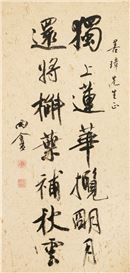 善璋先生正
獨上蓮華攬明月
還將槲葉補秋雲